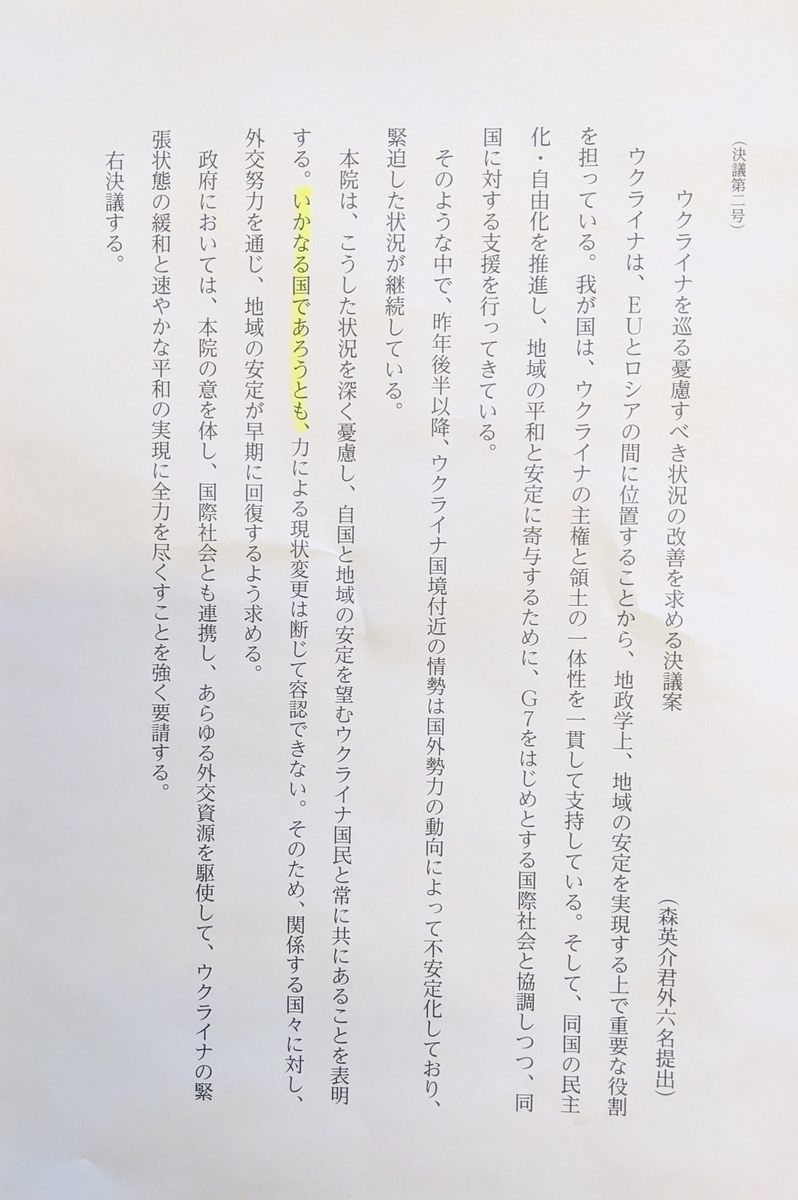 （決議第二号）
ウクライナを巡る憂慮すべき状況の改善を求める決議案
（森英介君外六名提出）
ウクライナは、ＥＵとロシアの間に位置することから、地政学上、地域の安定を実現する上で重要な役割
を担っている。我が国は、ウクライナの主権と領土の一体性を一貫して支持している。そして、同国の民主
化・自由化を推進し、地域の平和と安定に寄与するために、Ｇ７をはじめとする国際社会と協調しつつ、同
国に対する支援を行ってきている。
そのような中で、昨年後半以降、ウクライナ国境付近の情勢は国外勢力の動向によって不安定化しており、
緊迫した状況が継続している。
本院は、こうした状況を深く憂慮し、自国と地域の安定を望むウクライナ国民と常に共にあることを表明
する。いかなる国であろうとも、力による現状変更は断じて容認できない。そのため、関係する国々に対し、
外交努力を通じ、地域の安定が早期に回復するよう求める。
政府においては、本院の意を体し、国際社会とも連携し、あらゆる外交資源を駆使して、ウクライナの緊
張状態の緩和と速やかな平和の実現に全力を尽くすことを強く要請する。
右決議する。